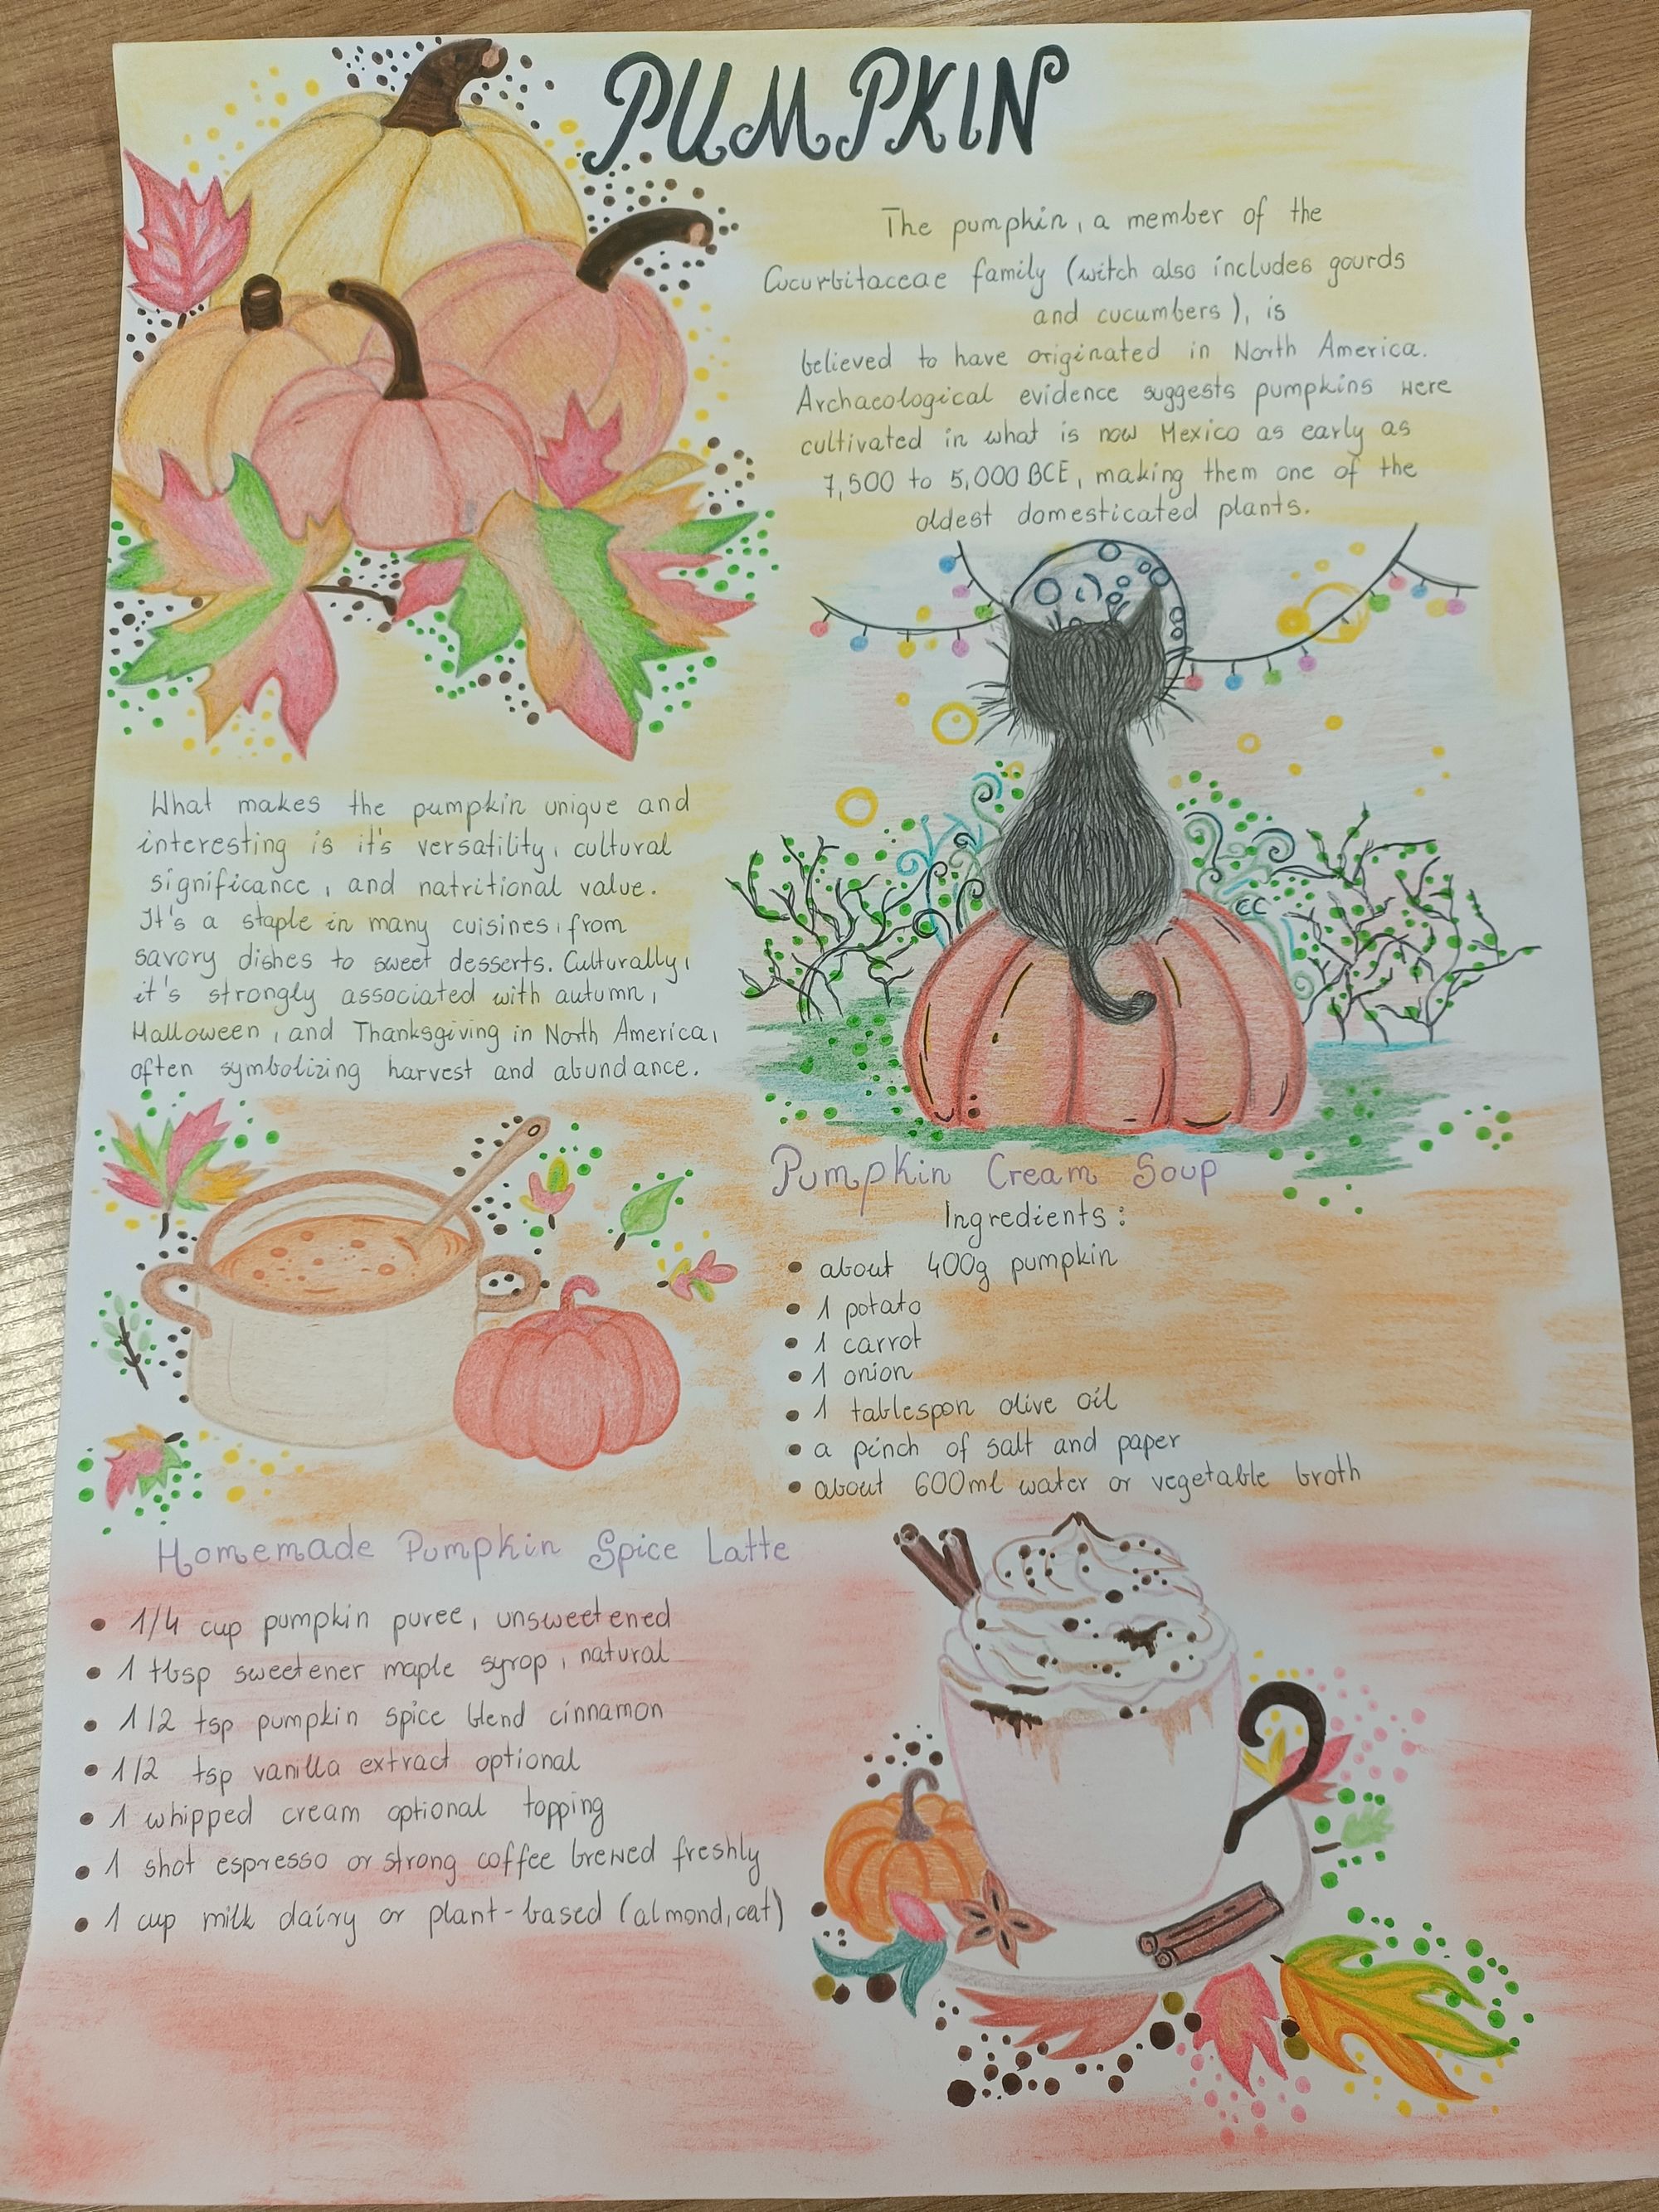 PUMPKIN
The pumpkin, a member of the
Cucurbitaceae family (witch also includes gourds
and cucumbers), is
believed to have originated in North America.
Archaeological evidence suggests pumpkins were
cultivated in what is now Mexico as early as
7,500 to 5,000 BCE, making them one of the
oldest domesticated plants.
What makes the pumpkin unique and
interesting is it's versatility, cultural
significance, and natritional value.
It's a staple in many cuisines, from
savory dishes to sweet desserts. Culturally,
it's strongly associated with autumn,
Halloween, and Thanksgiving in North America,
often symbolizing harvest and abundance.
Pumpkin Cream Soup
Ingredients:
• about 400g pumpkin
• 1 potato
• 1 carrot
• 1 onion
• 1 tablespon olive oil
• a pinch of salt and paper
• about 600ml water or vegetable broth
Homemade Pumpkin Spice Latte
• 1/4 cup pumpkin puree, unsweetened
• 1 tbsp sweetener maple syrop, natural
• 1/2 tsp pumpkin spice blend cinnamon
• 1/2 tsp vanilla extract optional
• 1 whipped cream optional topping
• 1 shot espresso or strong coffee brewed freshly
• 1 cup milk dairy or plant-based (almond, oat)